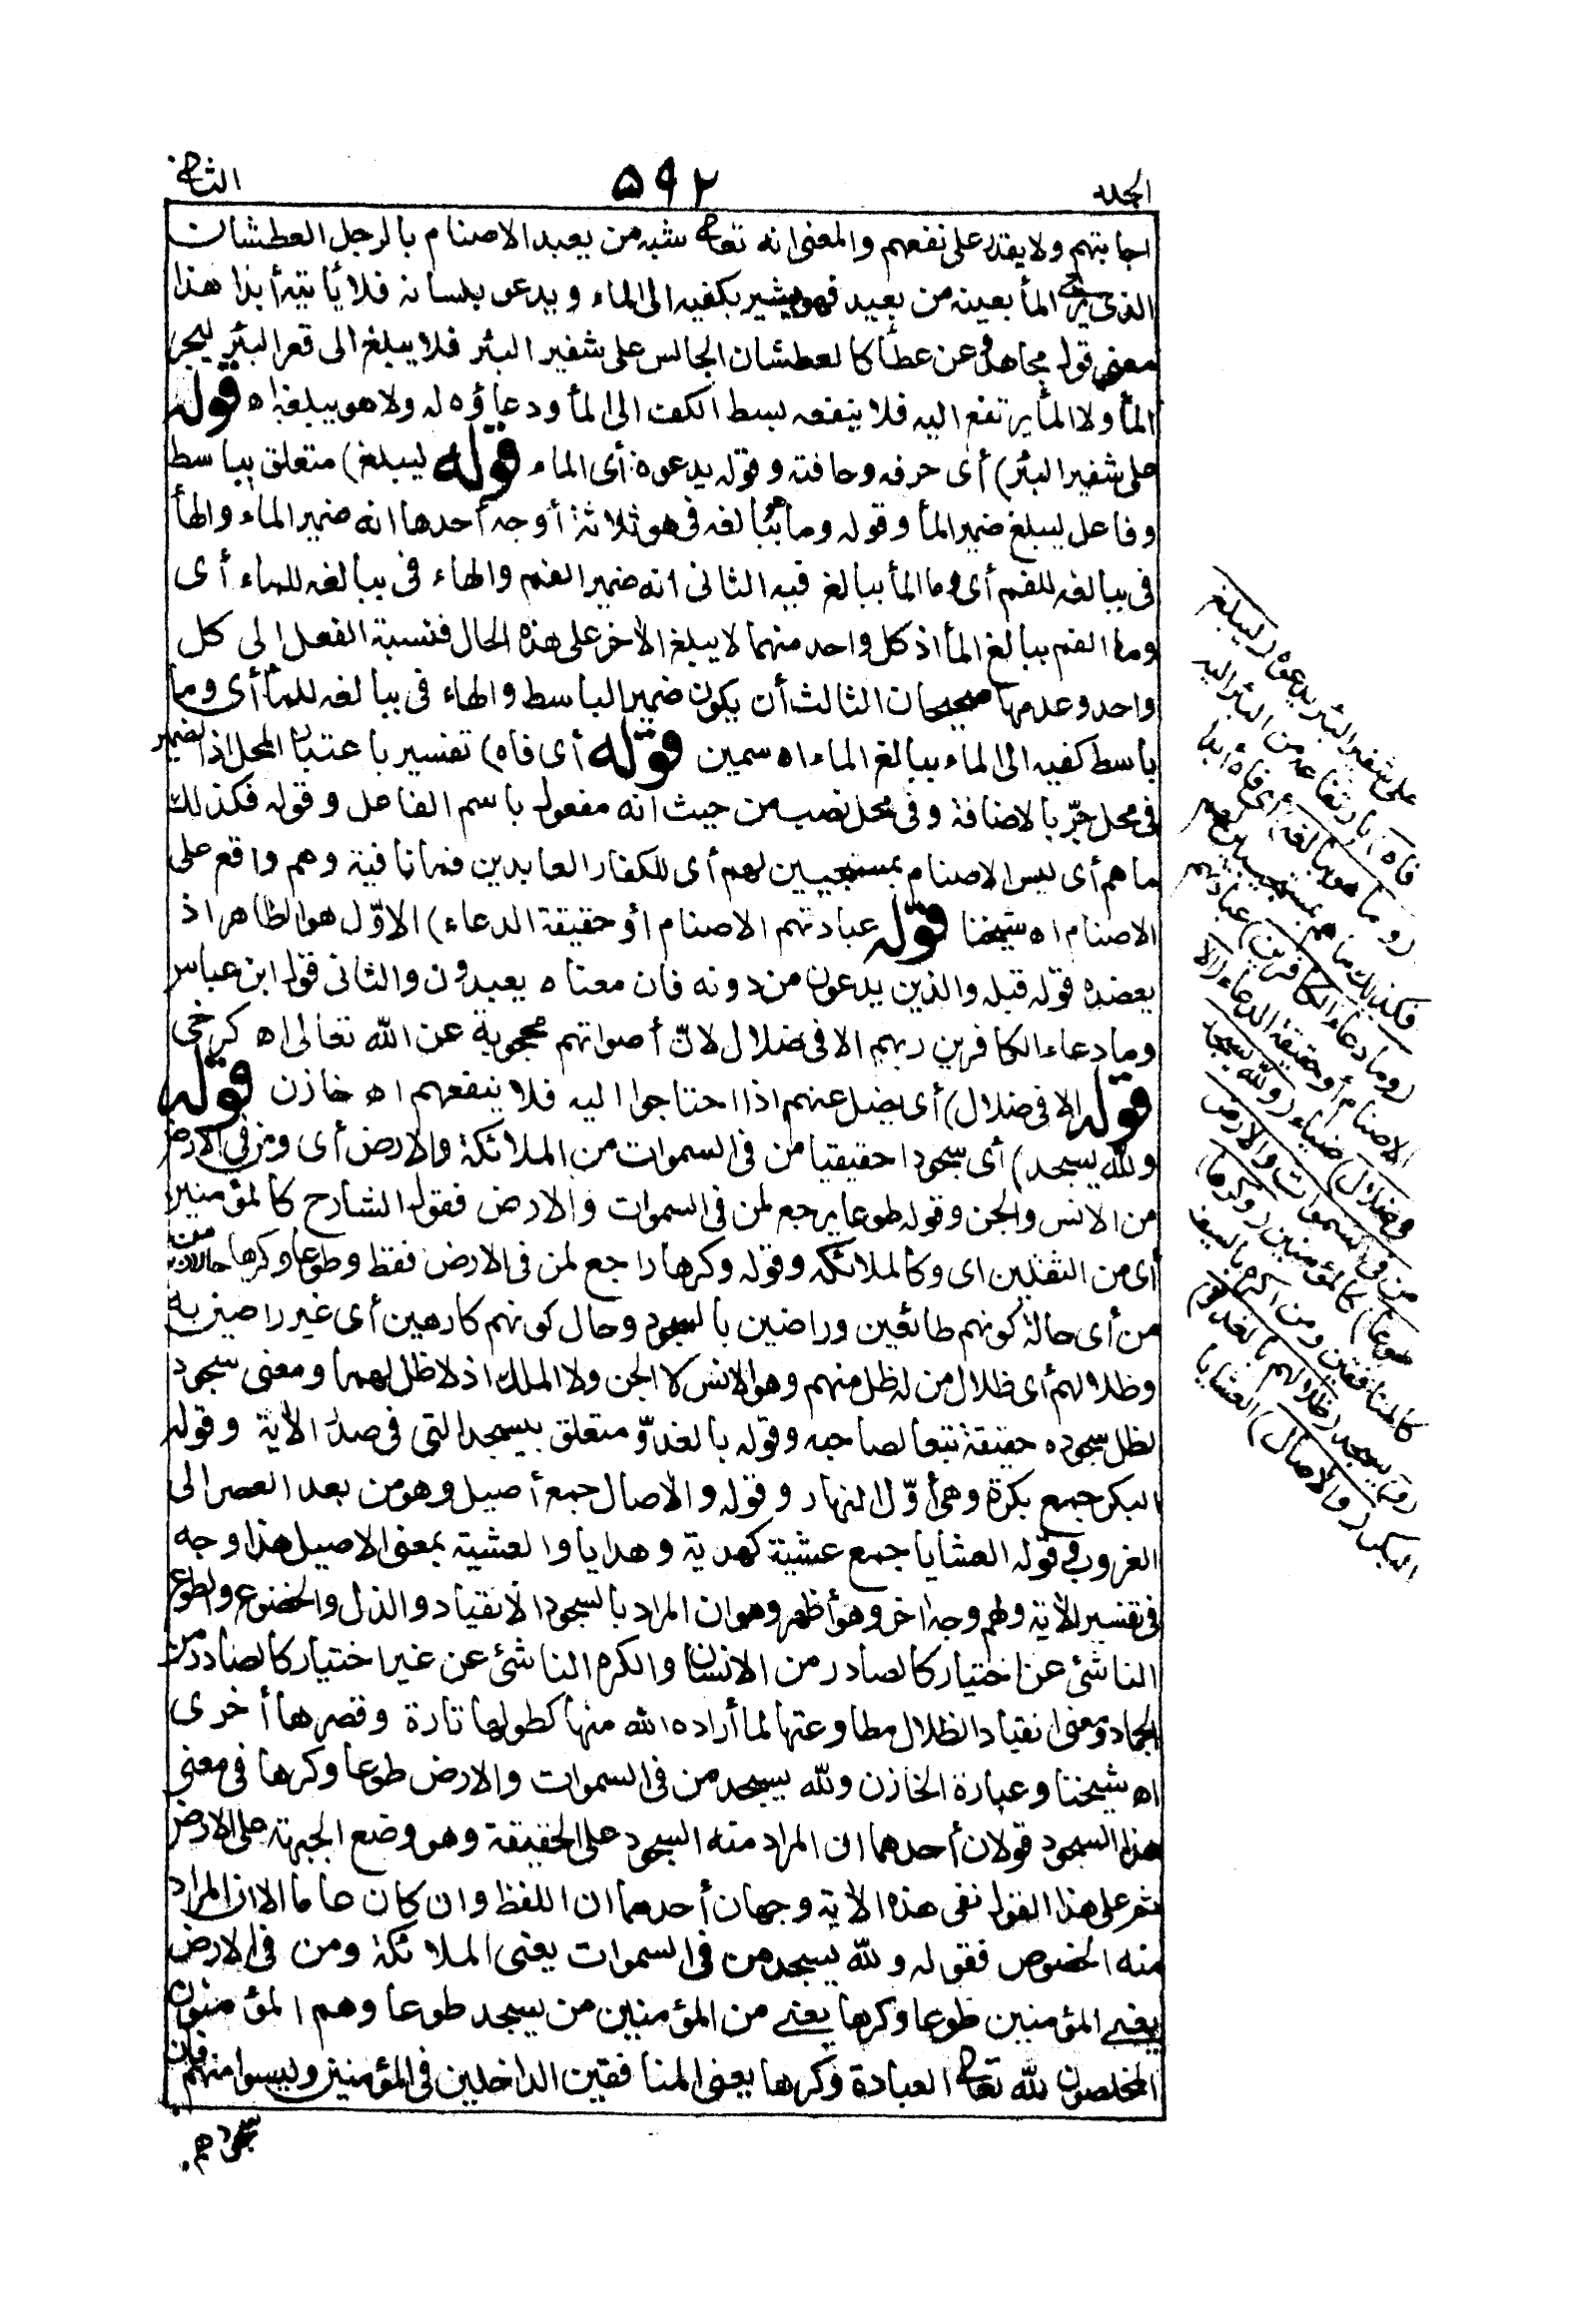 الجلد
٥٩٢
الثانى
اجابتهم ولا يقدر على نفعهم والمعنى انه تعالى شبه من يعبد الاصنام بالرجل العطشان
الذى يرى الماء بعينه من بعيد فهو يشير بكفيه الى الماء ويدعو بلسانه فلا يأتيه أبدا هذا
معنى قول مجاهد وعن عطاء كالعطشان الجالس على شفير البئر فلا يبلغ الى قعر البئر ليخرج
الماء ولا الماء يرتفع اليه فلا ينفعه بسط الكف الى الماء ودعاؤه له ولا هو يبلغه اه قوله
على شفير البئر) أى حرفه وحافته وقوله يدعوه أى الماء قوله ليبلغ) متعلق بباسط
وفاعل ليبلغ ضمير الماء وقوله وما هو ببالغه فى هو ثلاثة أوجه أحدها انه ضمير الماء والهاء
فى ببالغه للفم أى وما الماء ببالغ فيه الثانى انه ضمير الفم والهاء فى ببالغه للماء أى
وما الفم ببالغ الماء اذ كل واحد منهما لا يبلغ الآخر على هذه الحال فنسبة الفعل الى كل
واحد وعدمها صحيحان الثالث أن يكون ضمير الباسط والهاء فى ببالغه للماء أى وما
باسط كفيه الى الماء ببالغ الماء اه سمين قوله أى فاه) تفسير باعتبار المحل اذ الضمير
فى محل جرّ بالاضافة وفى محل نصب من حيث انه مفعول باسم الفاعل وقوله فكذلك
ما هم أى ليس الاصنام بمستجيبين لهم أى للكفار العابدين فما نافية وهم واقع على
الاصنام اه شيخنا قوله عبادتهم الاصنام أو حقيقة الدعاء) الاوّل هو الظاهر اذ
يعضده قوله قبله والذين يدعون من دونه فان معناه يعبدون والثانى قول ابن عباس
وما دعاء الكافرين ربهم الا فى ضلال لانّ أصواتهم محجوبة عن الله تعالى اه كرخى
قوله الا فى ضلال) أى يضل عنهم اذا احتاجوا اليه فلا ينفعهم اه خازن قوله
ولله يسجد) أى سجودا حقيقيا من فى السموات من الملائكة والارض أى ومن فى الارض
من الانس والجن وقوله طوعا يرجع لمن فى السموات والارض فقول الشارح كالمؤمنين
أى من الثقلين اى وكالملائكة وقوله وكرها راجع لمن فى الارض فقط وطوعا وكرها حالان من
من أى حالة كونهم طائعين وراضين بالسجود وحال كونهم كارهين أى غير راضين به
وظلالهم أى ظلال من له ظل منهم وهو الانس لا الجن ولا الملك اذ لا ظل لهما ومعنى سجود
الظل سجوده حقيقة تبعا لصاحبه وقوله بالغدوّ متعلق بيسجد التى فى صدر الآية وقوله
البكر جمع بكرة وهى أوّل النهار وقوله والآصال جمع أصيل وهو من بعد العصر الى
الغروب فى قوله العشايا جمع عشية كهدية وهدايا والعشية بمعنى الاصيل هذا وجه
فى تفسير الآية ولهم وجه آخر وهو أظهر وهو ان المراد بالسجود الانقياد والذل والخضوع والطوع
الناشئ عن اختيار كالصادر من الانسان والكره الناشئ عن غير اختيار كالصادر من
الجماد ومعنى انقياد الظلال مطاوعتها لما أراده الله منها كطولها تارة وقصرها أخرى
اه شيخنا وعبارة الخازن ولله يسجد من فى السموات والارض طوعا وكرها فى معنى
هذا السجود قولان أحدهما ان المراد منه السجود على الحقيقة وهو وضع الجبهة على الارض
ثم على هذا القول نفى هذه الآية وجهان أحدهما ان اللفظ وان كان عاما الا ان المراد
منه الخصوص فقوله ولله يسجد من فى السموات يعنى الملائكة ومن فى الارض
يعنى المؤمنين طوعا وكرها يعنى من المؤمنين من يسجد طوعا وهم المؤمنون
المخلصون لله تعالى العبادة وكرها يعنى المنافقين الداخلين فى المؤمنين وليسوا منهم فان
سجودهم
على شفير البئر يدعوه (ليبلغ
فاه) بارتفاعه من البئر اليه
(وما هو ببالغه) أى فاه أبدا
فكذلك ما هم بمستجيبين لهم
(وما دعاء الكافرين) عبادتهم
الاصنام أو حقيقة الدعاء (الا
فى ضلال) ضياع (ولله يسجد
من فى السموات والارض
طوعا) كالمؤمنين (وكرها)
كالمنافقين ومن اكره بالسيف
(و) يسجد (ظلالهم بالغدو)
البكر (والآصال) العشايا